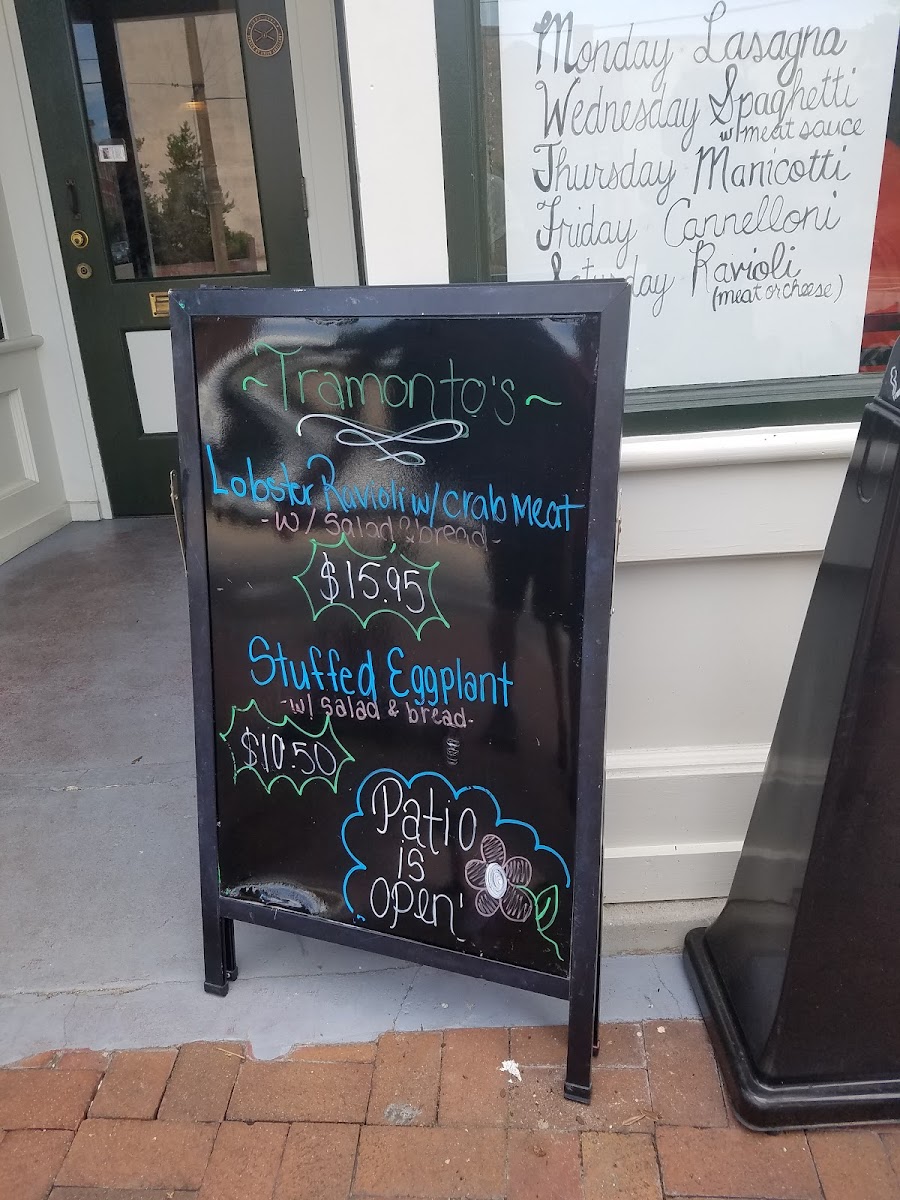 Monday Lasagna
Wednesday Spaghetti
w/ meat sauce
Thursday Manicotti
Friday Cannelloni
Saturday Ravioli
(meat or cheese)
~Tramonto's~
Lobster Ravioli w/ Crab Meat
-w/ salad & bread-
$15.95
Stuffed Eggplant
-w/ salad & bread-
$10.50
Patio
is
open